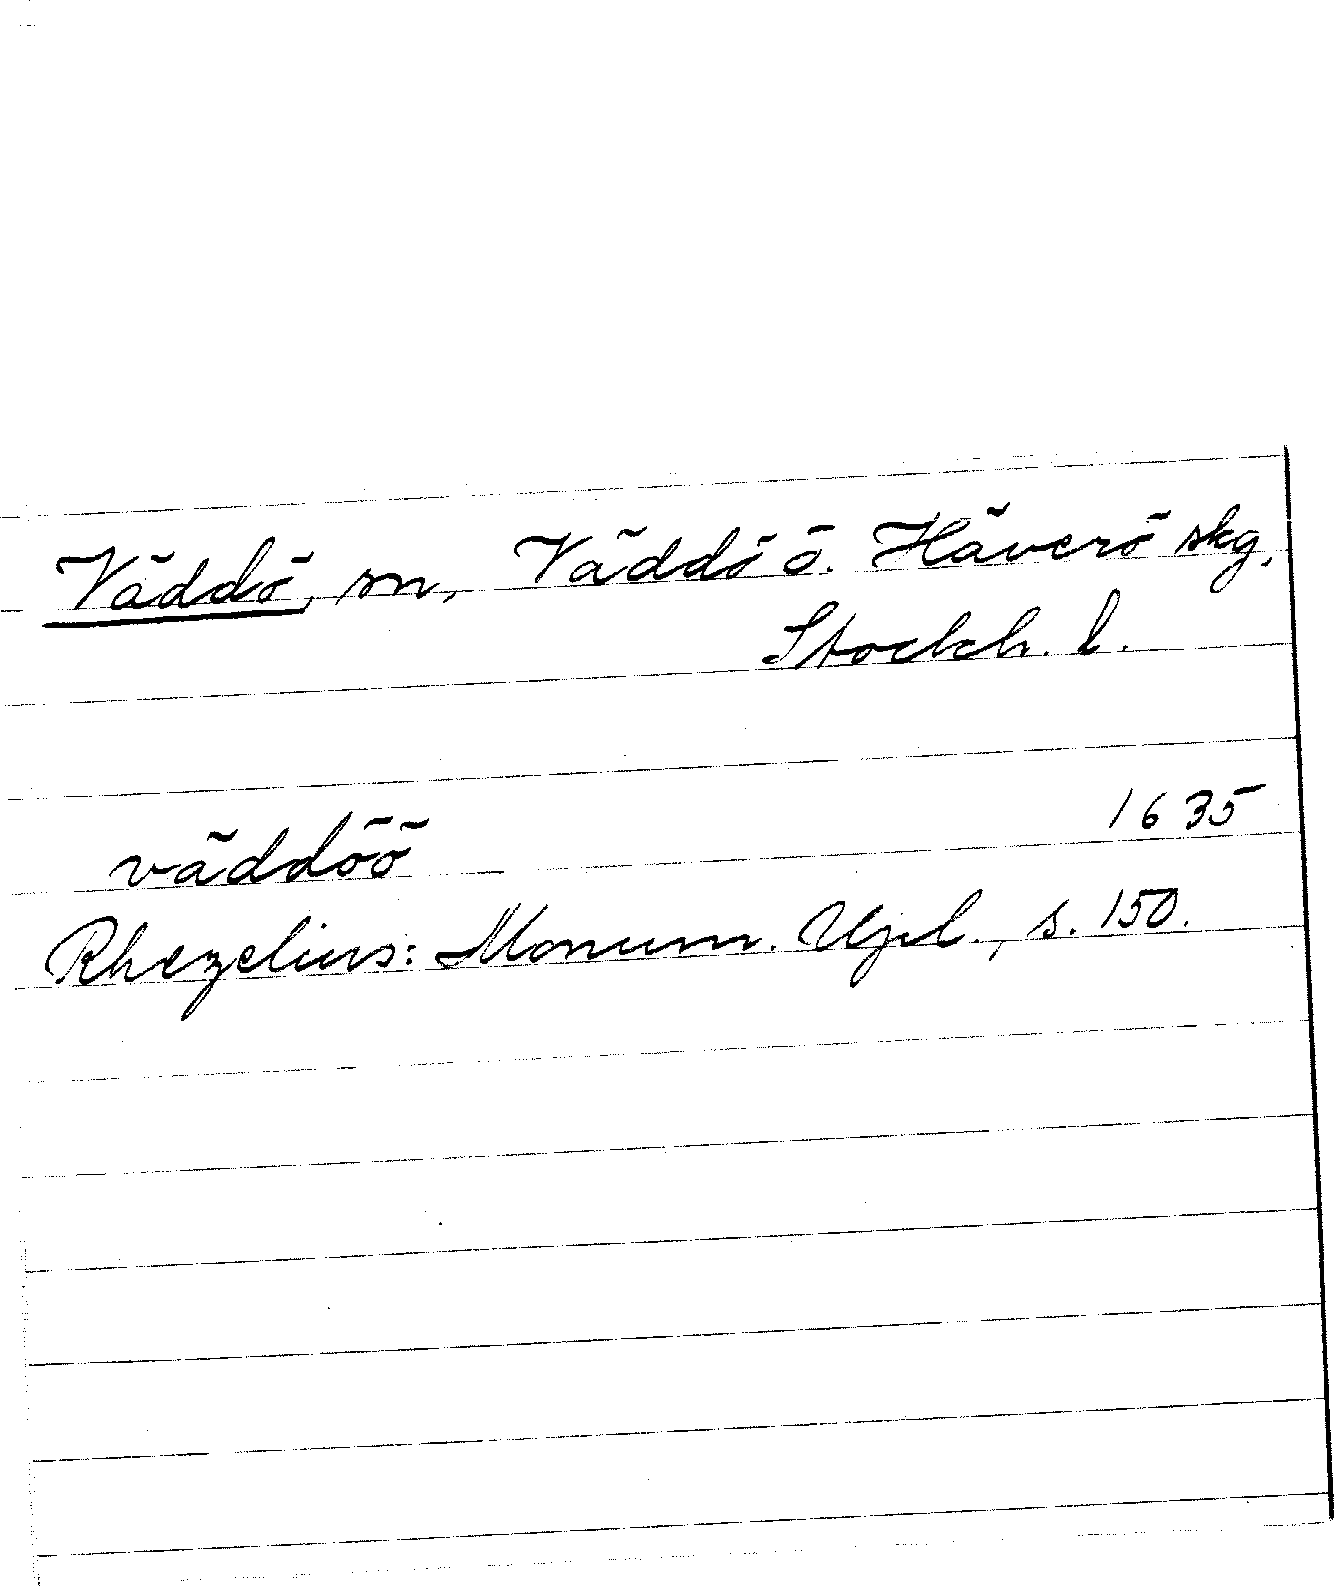 Väddö, sn, Väddö o. Häverö skg,
Stockh. l.
väddöö 1635
Rhezelius: Monum. Upl., s. 150.